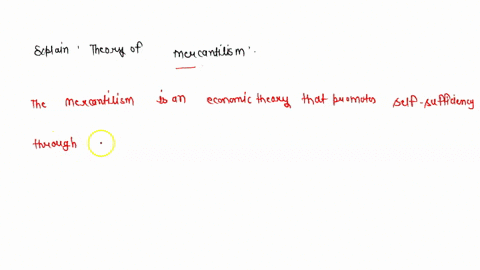 Explain : Theory of mercantilism :
The mercantilism is an economic theory that promotes self-suffidency
through